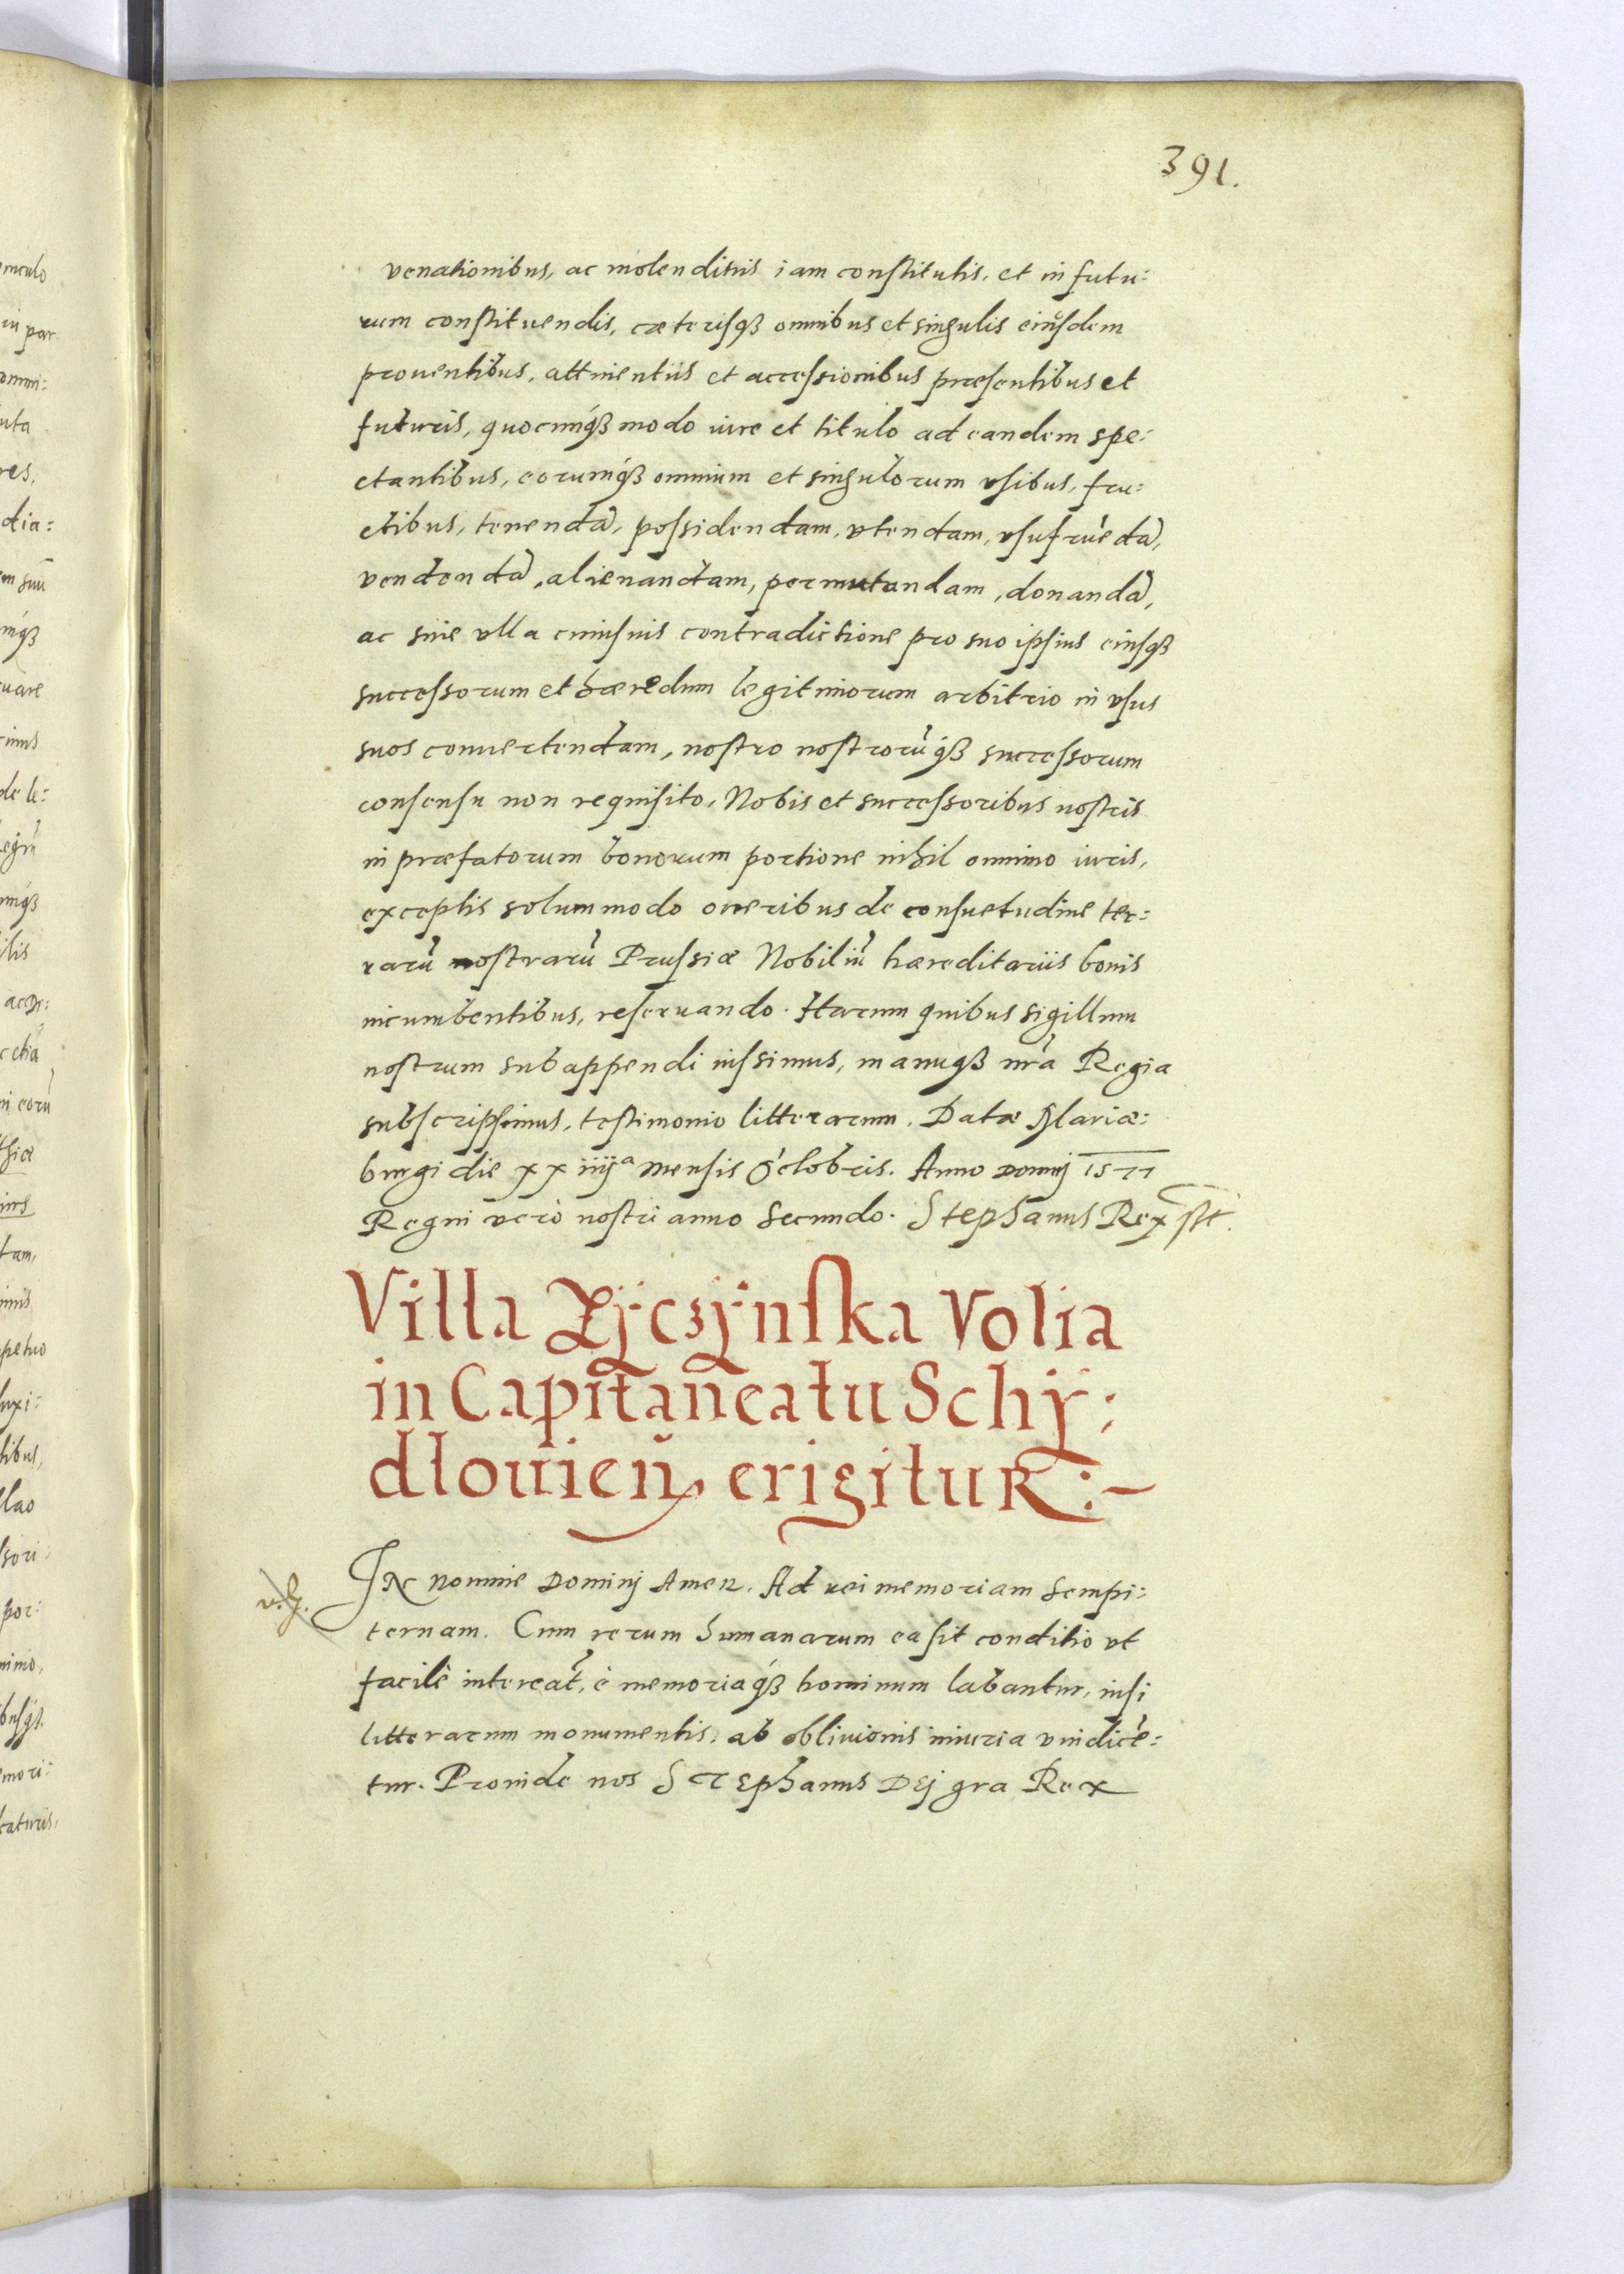 391.
venationibus, ac molendinis iam constitutis, et in futu:
rum constituendis, cæterisqȝ omnibus et singulis eiusdem
prouentibus, attinentiis et accessionibus præsentibus et
futuris, quocunqȝ modo iure et titulo ad eandem spe:
ctantibus, eorumqȝ omnium et singulorum vsibus, fru:
ctibus, tenendā, possidendam, vtendam, vsufruēdā,
vendendā, alienandam, permutandam, donandā,
ac sine vlla cuiusuis contradictione pro suo ipsius eiusqȝ
successorum et hæredum legitimorum arbitrio in vsus
suos conuertendam, nostro nostrorūqȝ successorum
consensu non requisito, Nobis et successoribus nostris
in præfatorum bonorum portione nihil omnino iuris,
exceptis solummodo oneribus de consuetudine ter:
rarū nostrarū Prussiæ Nobiliū hæreditariis bonis
incumbentibus, reseruando. Harum quibus sigillum
nostrum subappendi iussimus, manuqȝ nrā Regia
subscripsimus, testimonio litterarum. Datæ Mariæ:
burgi die xx iiijª mensis Octobris. Anno Dominj 1577
Regni verò nostri anno Secundo. Stephanus Rex sst.
Villa Zÿczÿnska Volia
in Capitaneatu Schÿ:
dłovien̄ erigitur:-
v.g.
IN nomine Dominj Amen. Ad rei memoriam sempi:
ternam. Cum rerum humanarum ea sit conditio vt
facilè intereāt, è memoriaqȝ hominum labantur, nisi
litterarum monumentis, ab obliuionis iniuria vindicē:
tur. Proinde nos Stephanus Dej gra Rex